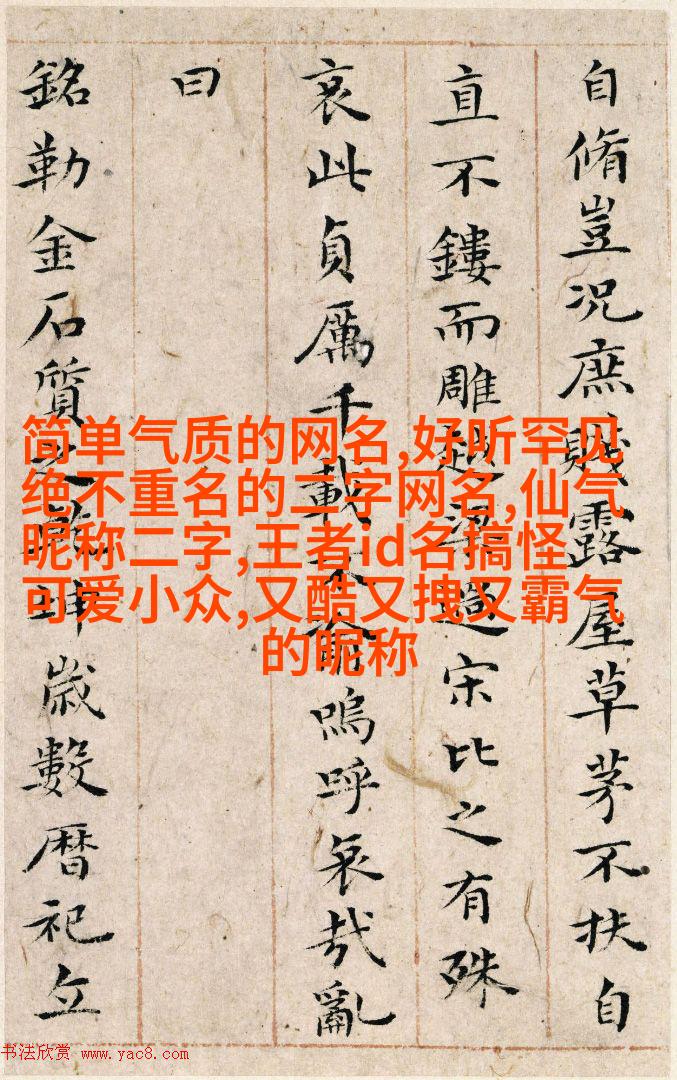 自脩豈況庶賤露屋草茅不扶自
直不鏤而雕越過宋比之有殊
哀此貞厲千載不嗚呼哀哉亂
曰
銘勒金石質之坤歲數暦祀立
简单气质的网名,好听罕见
绝不重名的二字网名,仙气
昵称二字,王者id名搞怪
可爱小众,又酷又拽又霸气
的昵称
书法欣赏 www.yac8.com